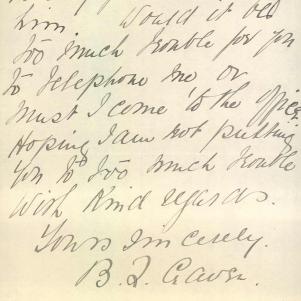 him Would it be
too much trouble for you
to telephone me or
must I come to the office.
Hoping I am not putting
you to too much trouble
With Kind regards.
Yours Sincerely.
B. L. Craven.